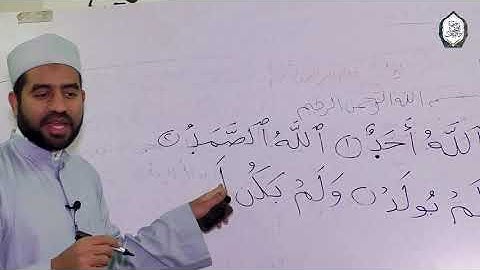 بسم الله الرحمن الرحيم
ٱللَّهُ أَحَدٌ ١ ٱللَّهُ ٱلصَّمَدُ ٢
لَمْ يُولَدْ ٣ وَلَمْ يَكُن لَّ